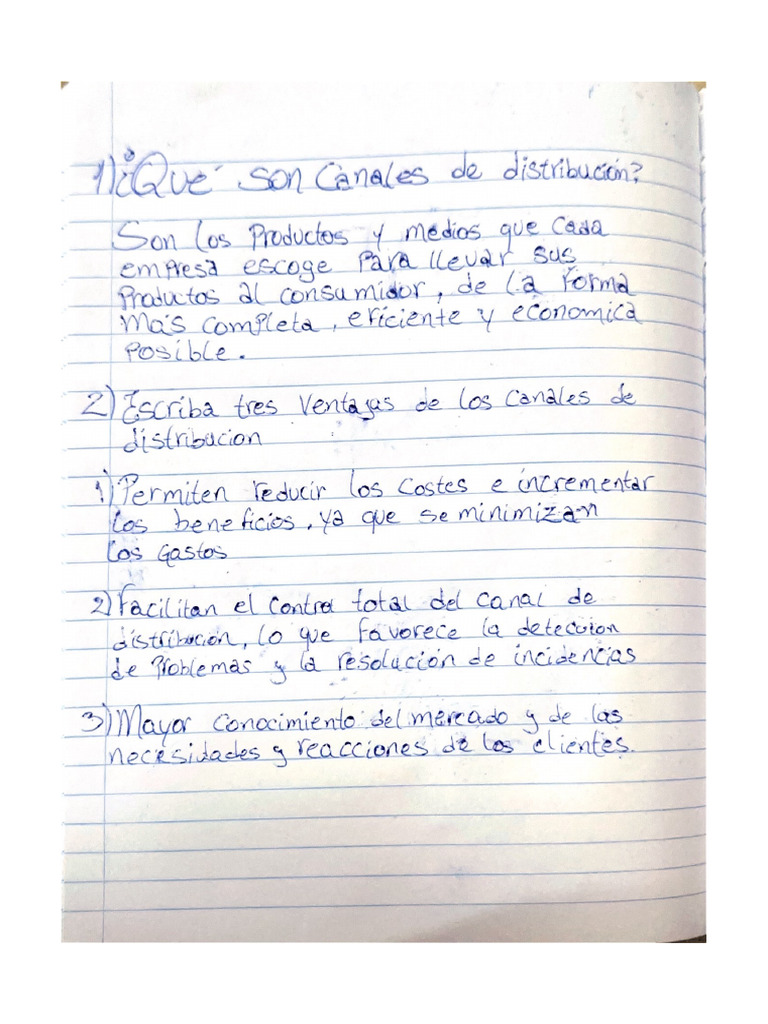 1) ¿Qué son canales de distribución?
Son los productos y medios que cada
empresa escoge para llevar sus
productos al consumidor, de la forma
más completa, eficiente y economica
posible.
2) Escriba tres ventajas de los canales de
distribucion
1) Permiten reducir los costes e incrementar
los beneficios, ya que se minimizan
los gastos
2) Facilitan el control total del canal de
distribución, lo que favorece la deteccion
de problemas y la resolución de incidencias
3) Mayor conocimiento del mercado y de las
necesidades y reacciones de los clientes.